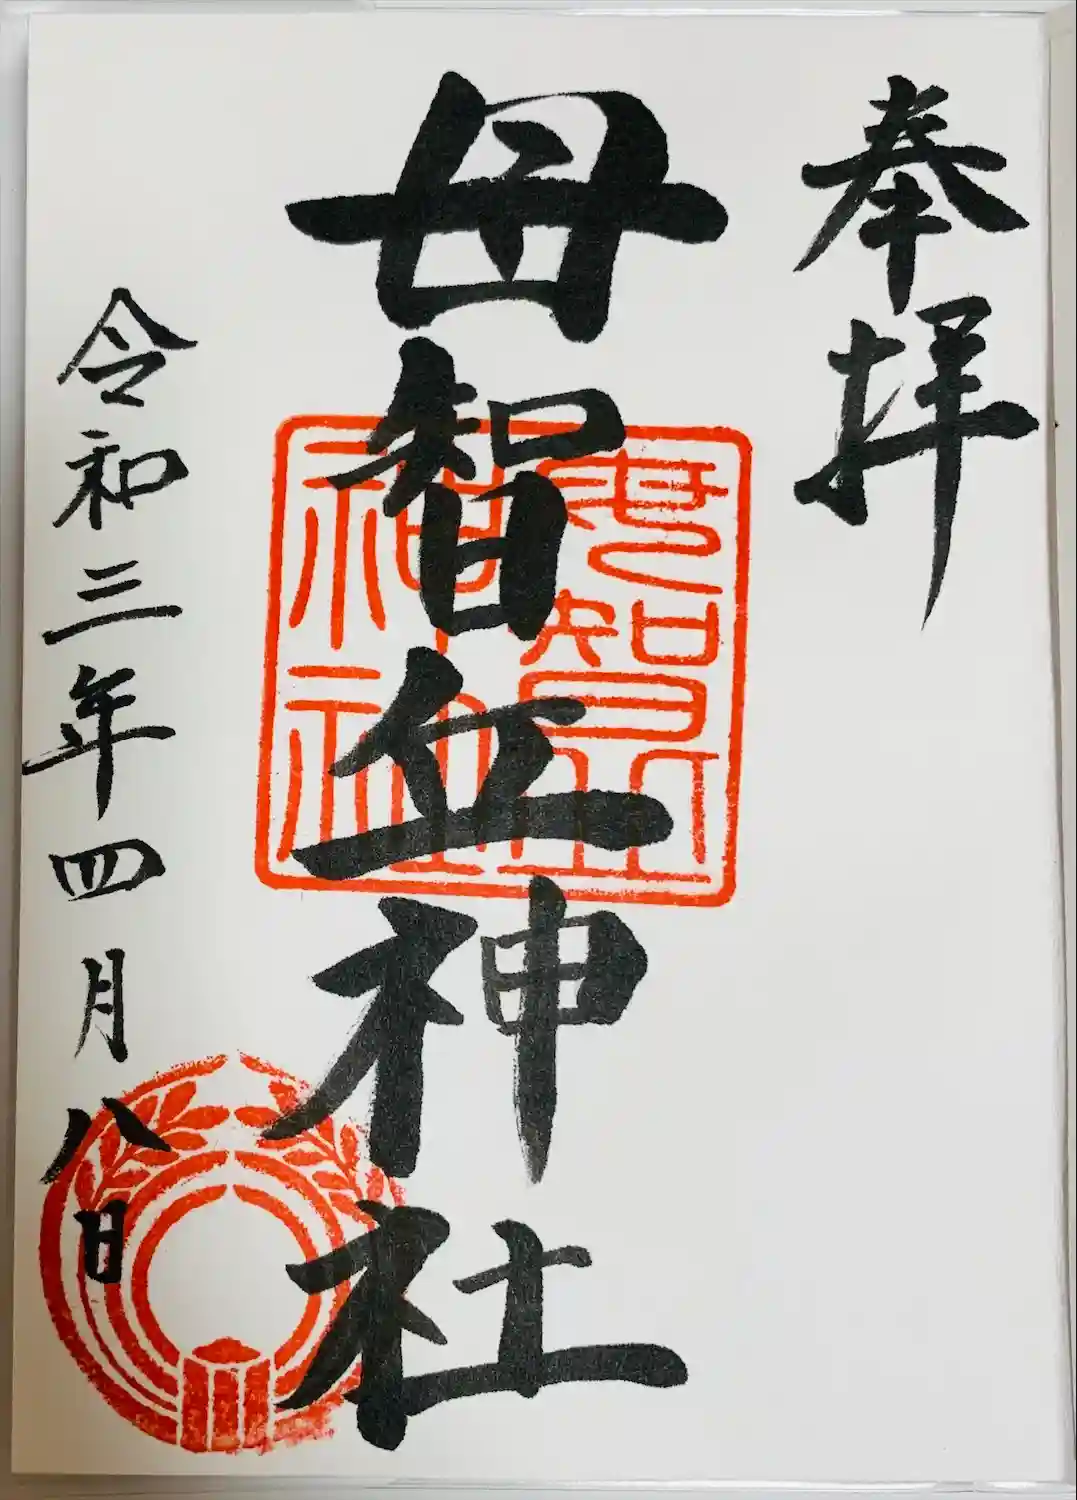 奉拝
母智丘神社
母智丘神社
令和三年四月八日